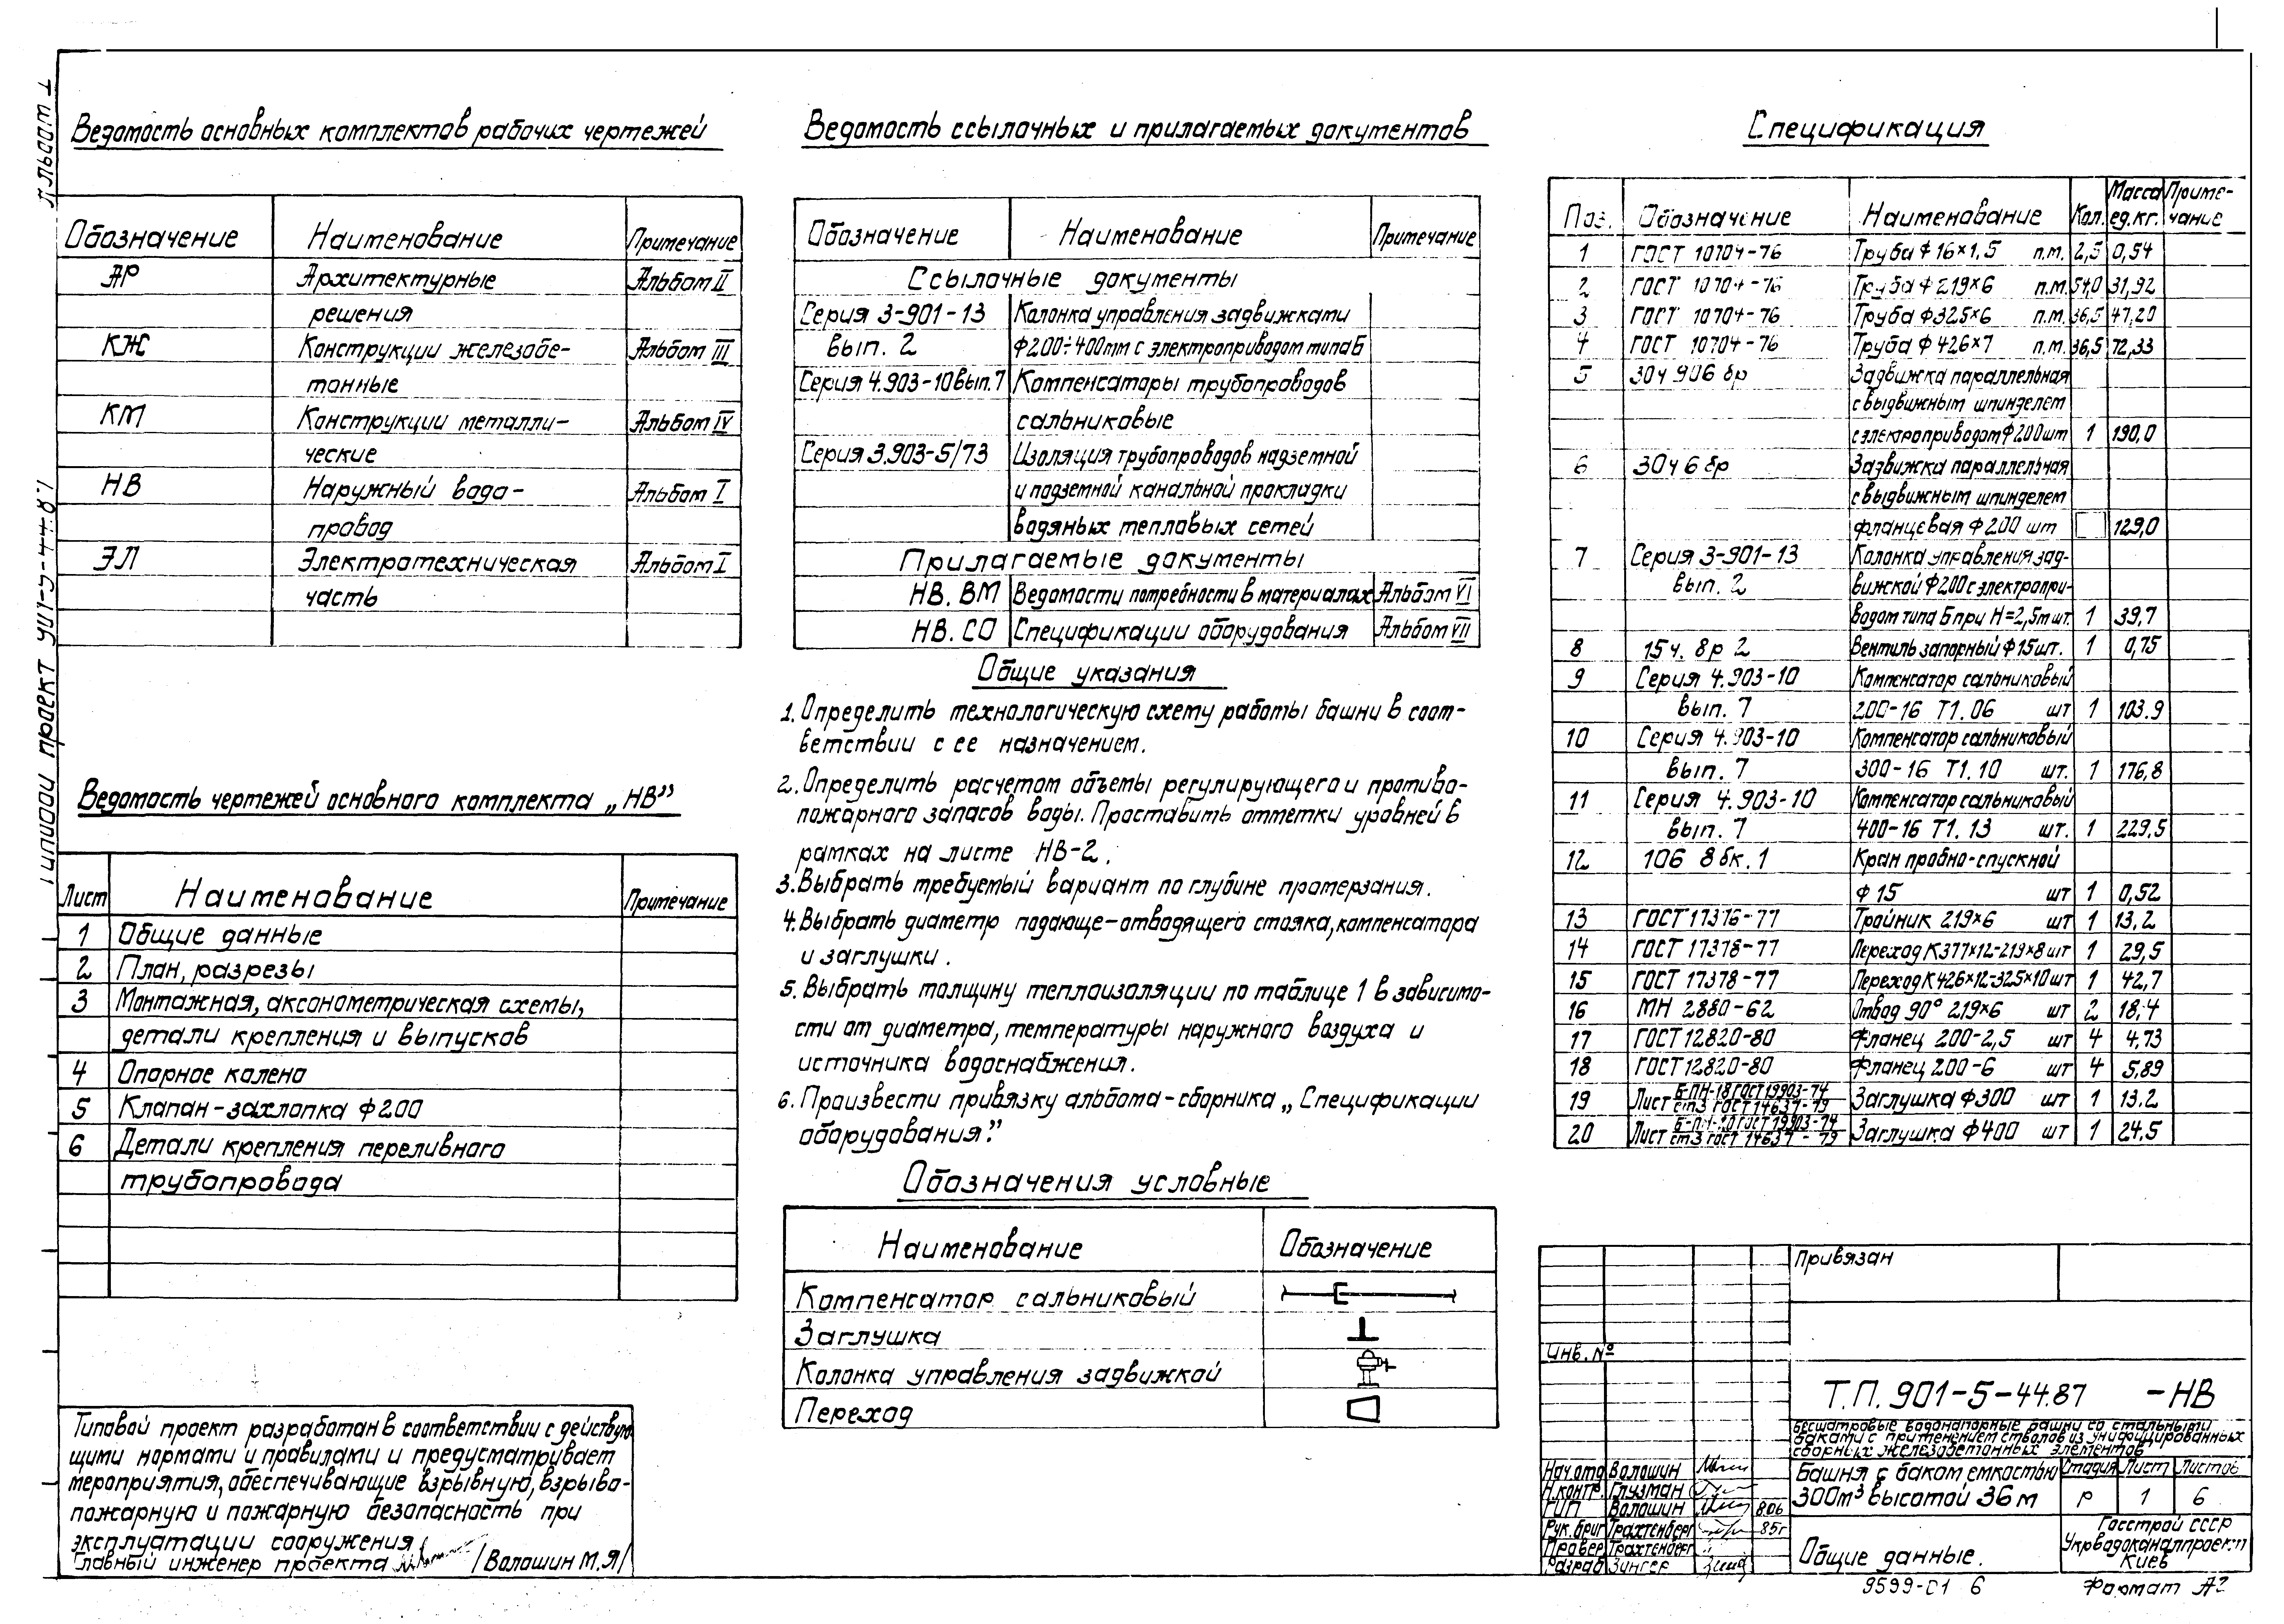 Альбом I
Типовой проект 901-5-44.87
Ведомость основных комплектов рабочих чертежей
Обозначение Наименование Примечание
АР Архитектурные Альбом II
решения
КЖ Конструкции железобе- Альбом III
тонные
КМ Конструкции металли- Альбом IV
ческие
НВ Наружный водо- Альбом I
провод
ЭЛ Электротехническая Альбом I
часть
Ведомость чертежей основного комплекта „НВ”
Лист Наименование Примечание
1 Общие данные
2 План, разрезы
3 Монтажная, аксонометрическая схемы,
детали крепления и выпусков
4 Опорное колено
5 Клапан-захлопка ф200
6 Детали крепления переливного
трубопровода
Типовой проект разработан в соответствии с действую-
щими нормами и правилами и предусматривает
мероприятия, обеспечивающие взрывную, взрыво-
пожарную и пожарную безопасность при
эксплуатации сооружения
Главный инженер проекта /Волошин М.Я/
Ведомость ссылочных и прилагаемых документов
Обозначение Наименование Примечание
Ссылочные документы
Серия 3-901-13 Колонка управления задвижками
вып. 2 ф200÷400мм с электроприводом типа Б
Серия 4.903-10 вып.7 Компенсаторы трубопроводов
сальниковые
Серия 3.903-5/73 Изоляция трубопроводов надземной
и подземной канальной прокладки
водяных тепловых сетей
Прилагаемые документы
НВ. ВМ Ведомости потребности в материалах Альбом VI
НВ. СО Спецификации оборудования Альбом VII
Общие указания
1. Определить технологическую схему работы башни в соот-
ветствии с ее назначением.
2. Определить расчетом объемы регулирующего и противо-
пожарного запасов воды. Проставить отметки уровней в
рамках на листе НВ-2.
3. Выбрать требуемый вариант по глубине промерзания.
4. Выбрать диаметр подающе-отводящего стояка, компенсатора
и заглушки.
5. Выбрать толщину теплоизоляции по таблице 1 в зависимо-
сти от диаметра, температуры наружного воздуха и
источника водоснабжения.
6. Произвести привязку альбома-сборника „Спецификации
оборудования”.
Обозначения условные
Наименование Обозначение
Компенсатор сальниковый
Заглушка
Колонка управления задвижкой
Переход
Спецификация
Поз. Обозначение Наименование Кол. Масса ед.кг. Приме-чание
1 ГОСТ 10704-76 Труба ф 16×1,5 п.м. 2,5 0,54
2 ГОСТ 10704-76 Труба ф 219×6 п.м. 54,0 31,92
3 ГОСТ 10704-76 Труба ф325×6 п.м. 36,5 47,20
4 ГОСТ 10704-76 Труба ф 426×7 п.м. 36,5 72,33
5 30ч 906 бр Задвижка параллельная
с выдвижным шпинделем
с электроприводом ф200 шт 1 190,0
6 30ч 6 бр Задвижка параллельная
с выдвижным шпинделем
фланцевая ф 200 шт 129,0
7 Серия 3-901-13 Колонка управления зад-
вып. 2 вижкой ф200 с электропри-
водом типа Б при Н=2,5м шт. 1 39,7
8 15ч. 8р 2 Вентиль запорный ф 15 шт. 1 0,75
9 Серия 4.903-10 Компенсатор сальниковый
вып. 7 200-16 Т1.06 шт 1 103.9
10 Серия 4.903-10 Компенсатор сальниковый
вып. 7 300-16 Т1.10 шт. 1 176,8
11 Серия 4.903-10 Компенсатор сальниковый
вып. 7 400-16 Т1.13 шт. 1 229,5
12 10б 8 бк. 1 Кран пробно-спускной
ф 15 шт 1 0,52
13 ГОСТ 17376-77 Тройник 219×6 шт 1 13.2
14 ГОСТ 17378-77 Переход К377×12-219×8 шт 1 29,5
15 ГОСТ 17378-77 Переход К426×12-325×10 шт 1 42,7
16 МН 2880-62 Отвод 90° 219×6 шт 2 18,4
17 ГОСТ 12820-80 Фланец 200-2,5 шт 4 4,73
18 ГОСТ 12820-80 Фланец 200-6 шт 4 5,89
19 Лист Б-ПН-18 ГОСТ 19903-74 ст3 ГОСТ 14637-79 Заглушка ф300 шт 1 13.2
20 Лист Б-ПН-20 ГОСТ 19903-74 ст3 ГОСТ 14637-79 Заглушка ф400 шт 1 24,5
Привязан
Инв. №
Т.П. 901-5-44.87 -НВ
Бесшатровые водонапорные башни со стальными
баками с применением стволов из унифицированных
сборных железобетонных элементов
Нач.отд Волошин
Н.контр. Глузман
ГИП Волошин
Рук.бриг Трахтенберг 85г
Провер Трахтенберг
Разраб Зингер
Башня с баком емкостью
300м³ высотой 36 м
Стадия Лист Листов
Р 1 6
Общие данные.
Госстрой СССР
Укрводоканалпроект
Киев
9599-01 6 Формат А2